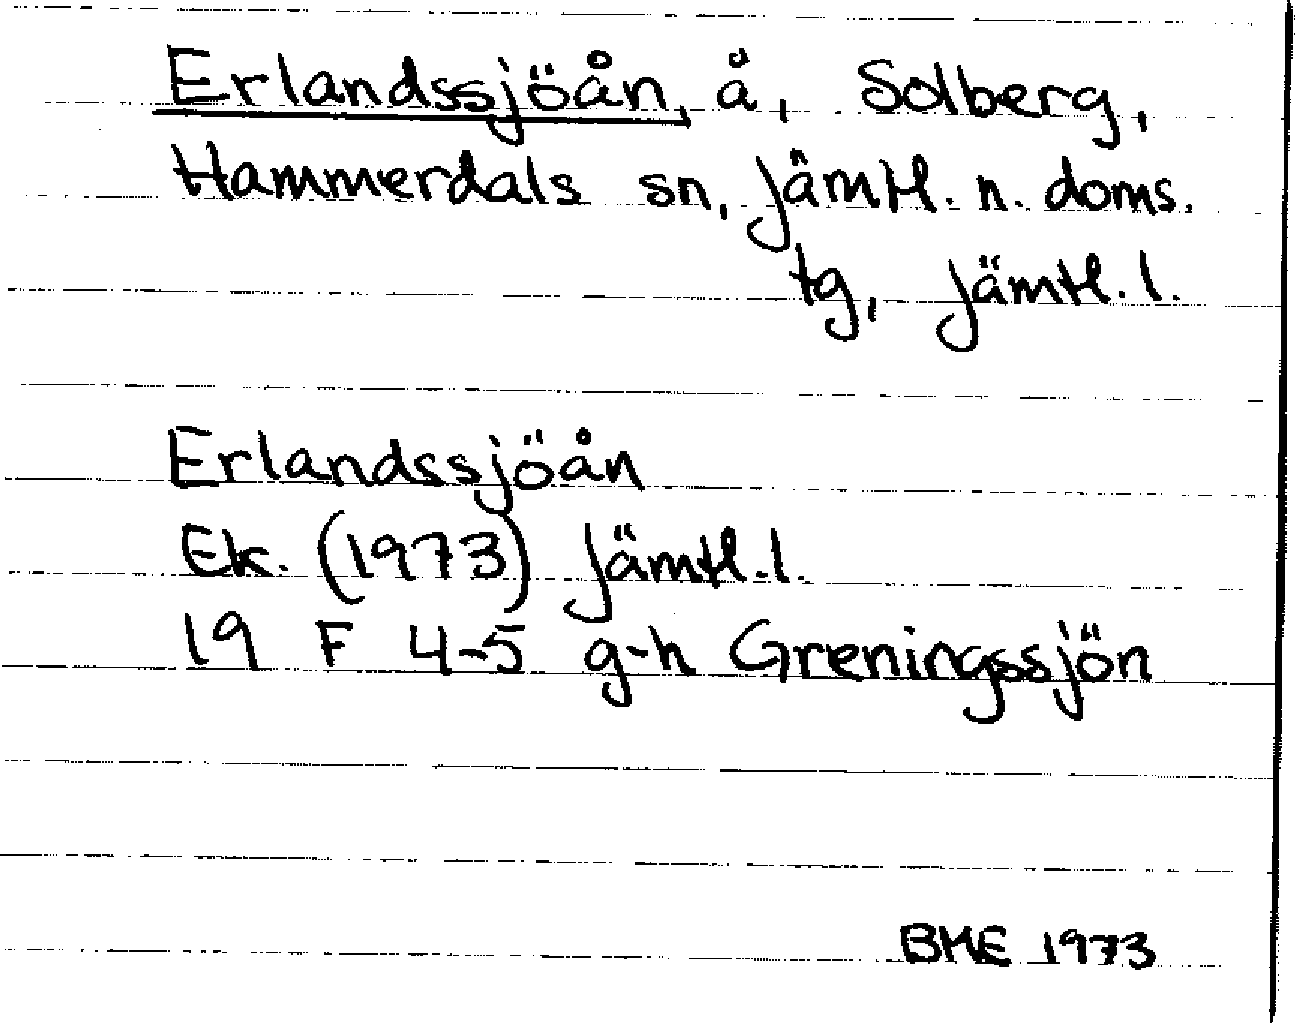 Erlandssjöån, å, Solberg,
Hammerdals sn, Jämtl. n. doms.
tg, Jämtl. l.
Erlandssjöån
Ek. (1973) Jämtl. l.
19 F 4-5 g-h Greningssjön
BME 1973